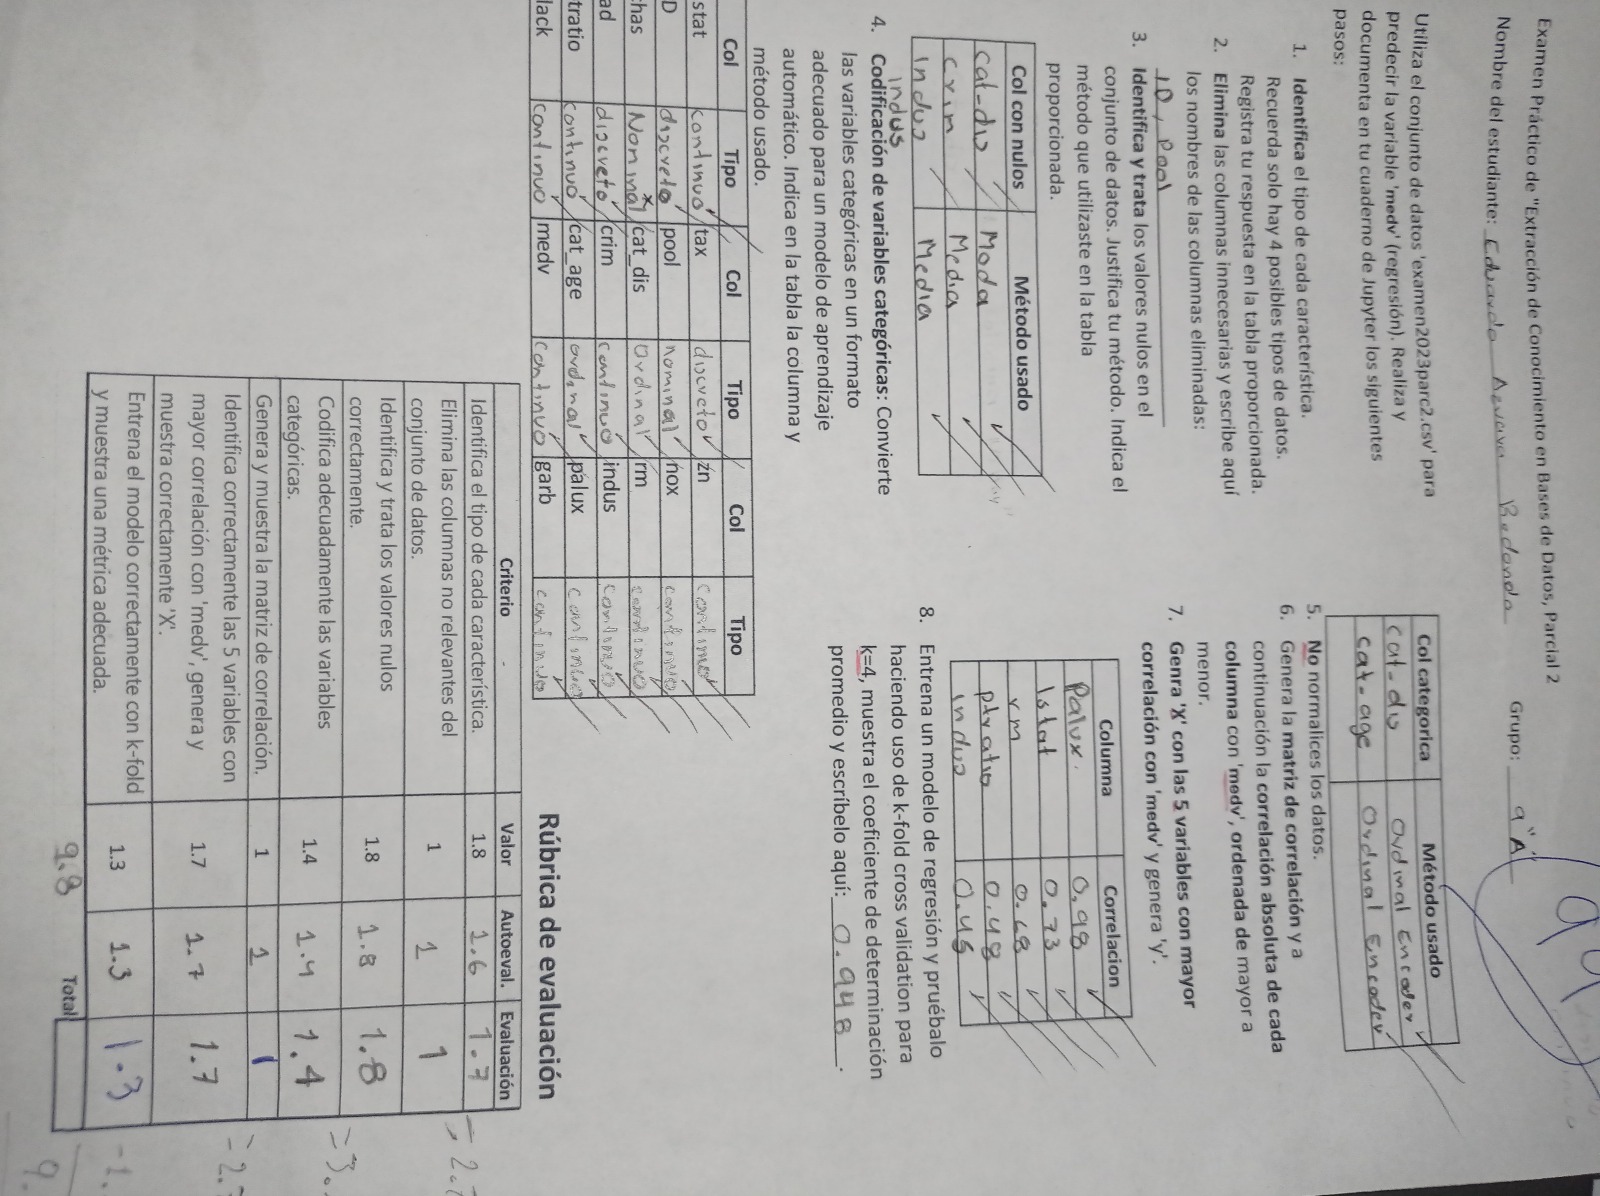 Examen Práctico de "Extracción de Conocimiento en Bases de Datos, Parcial 2
Nombre del estudiante: Eduardo Redondo Grupo: 9"A"
Utiliza el conjunto de datos 'examen2023parc2.csv' para
predecir la variable 'medv' (regresión). Realiza y
documenta en tu cuaderno de Jupyter los siguientes
pasos:
1. Identifica el tipo de cada característica.
Recuerda solo hay 4 posibles tipos de datos.
Registra tu respuesta en la tabla proporcionada.
2. Elimina las columnas innecesarias y escribe aquí
los nombres de las columnas eliminadas:
ID, Pool
3. Identifica y trata los valores nulos en el
conjunto de datos. Justifica tu método. Indica el
método que utilizaste en la tabla
proporcionada.
Col con nulos Método usado
cat-dis Moda
crim Media
indus Media
4. Codificación de variables categóricas: Convierte
indus
las variables categóricas en un formato
adecuado para un modelo de aprendizaje
automático. Indica en la tabla la columna y
método usado.
Col Tipo Col Tipo Col Tipo
stat continuo tax discreto zn continuo
D discreto pool nominal nox continuo
has Nominal cat_dis ordinal rm continuo
ad discreto crim continuo indus continuo
tratio continuo cat_age ordinal palux continuo
lack continuo medv continuo garb continuo
Col categorica Método usado
cat-dis Ordinal Encoder
cat-age Ordinal Encoder
5. No normalices los datos.
6. Genera la matriz de correlación y a
continuación la correlación absoluta de cada
columna con 'medv', ordenada de mayor a
menor.
7. Genra 'X' con las 5 variables con mayor
correlación con 'medv' y genera 'y'.
Columna Correlacion
Palux. 0.98
lstat 0.73
rm 0.68
ptratio 0.48
indus 0.45
8. Entrena un modelo de regresión y pruébalo
haciendo uso de k-fold cross validation para
k=4, muestra el coeficiente de determinación
promedio y escríbelo aquí: 0.948.
Rúbrica de evaluación
Criterio Valor Autoeval. Evaluación
Identifica el tipo de cada característica. 1.8 1.6 1.7
Elimina las columnas no relevantes del
conjunto de datos. 1 1 1
Identifica y trata los valores nulos
correctamente. 1.8 1.8 1.8
Codifica adecuadamente las variables
categóricas. 1.4 1.4 1.4
Genera y muestra la matriz de correlación. 1 1 1
Identifica correctamente las 5 variables con
mayor correlación con 'medv', genera y
muestra correctamente 'X'. 1.7 1.7 1.7
Entrena el modelo correctamente con k-fold
y muestra una métrica adecuada. 1.3 1.3 1.3
9.8 Total